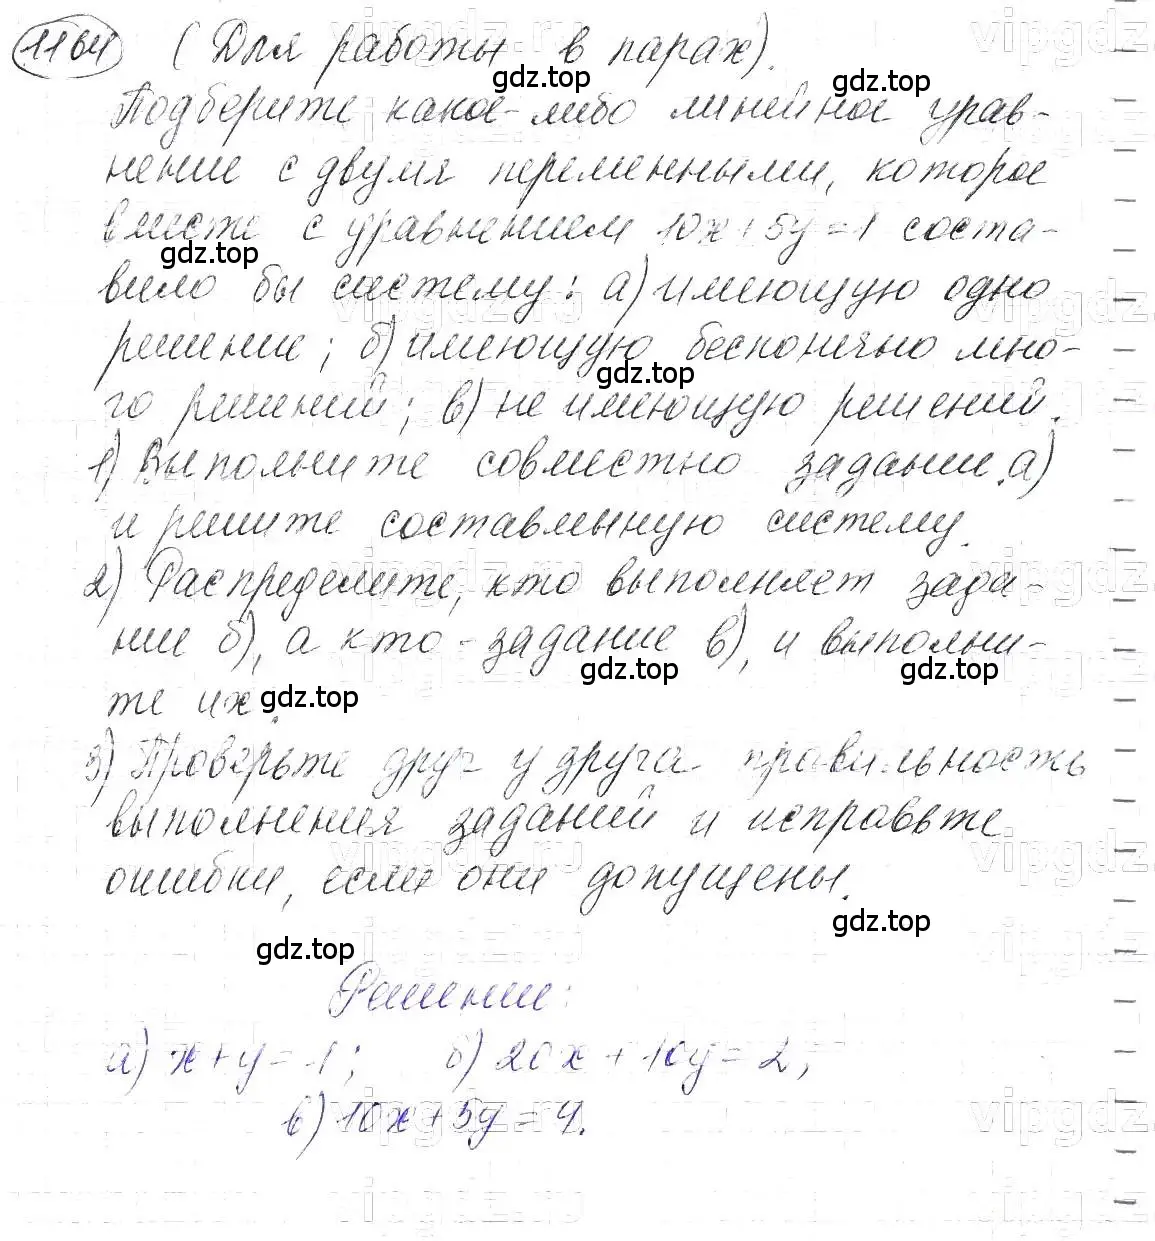 1164 (Для работы в парах).
Подберите какое-либо линейное урав-
нение с двумя переменными, которое
вместе с уравнением 10x+5y=1 соста-
вило бы систему: а) имеющую одно
решение; б) имеющую бесконечно мно-
го решений; в) не имеющую решений.
1) Выполните совместно задание а)
и решите составленную систему.
2) Распределите, кто выполняет зада-
ние б), а кто - задание в), и выполни-
те их.
3) Проверьте друг у друга правильность
выполнения заданий и исправьте
ошибки, если они допущены.
Решение:
а) x+y=1; б) 20x+10y=2;
в) 10x+5y=4.
gdz.top
gdz.top
gdz.top
gdz.top
gdz.top
gdz.top
gdz.top
gdz.top